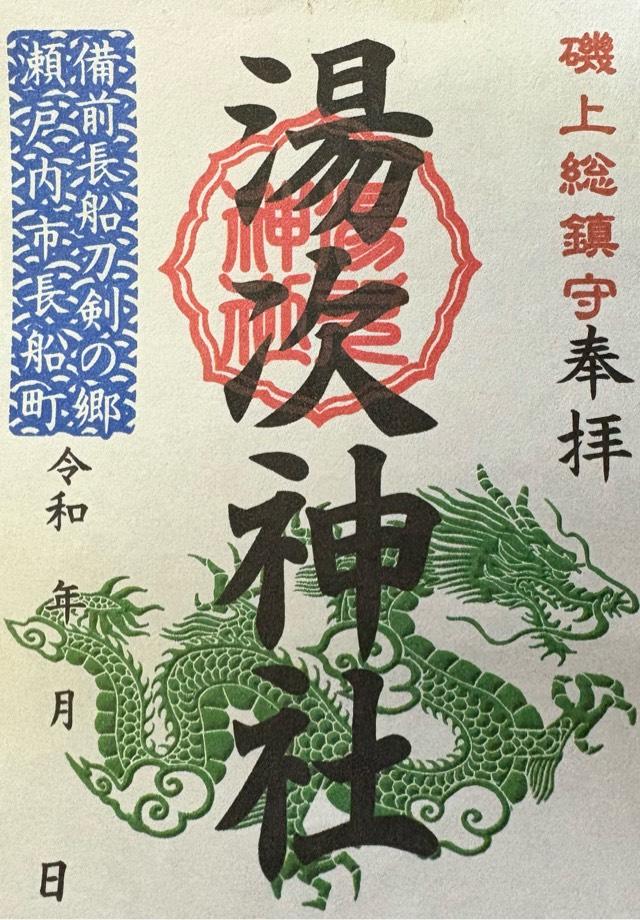 磯上総鎮守奉拝
湯次神社
湯次
神社
備前長船刀剣の郷
瀬戸内市長船町
令和 年 月 日